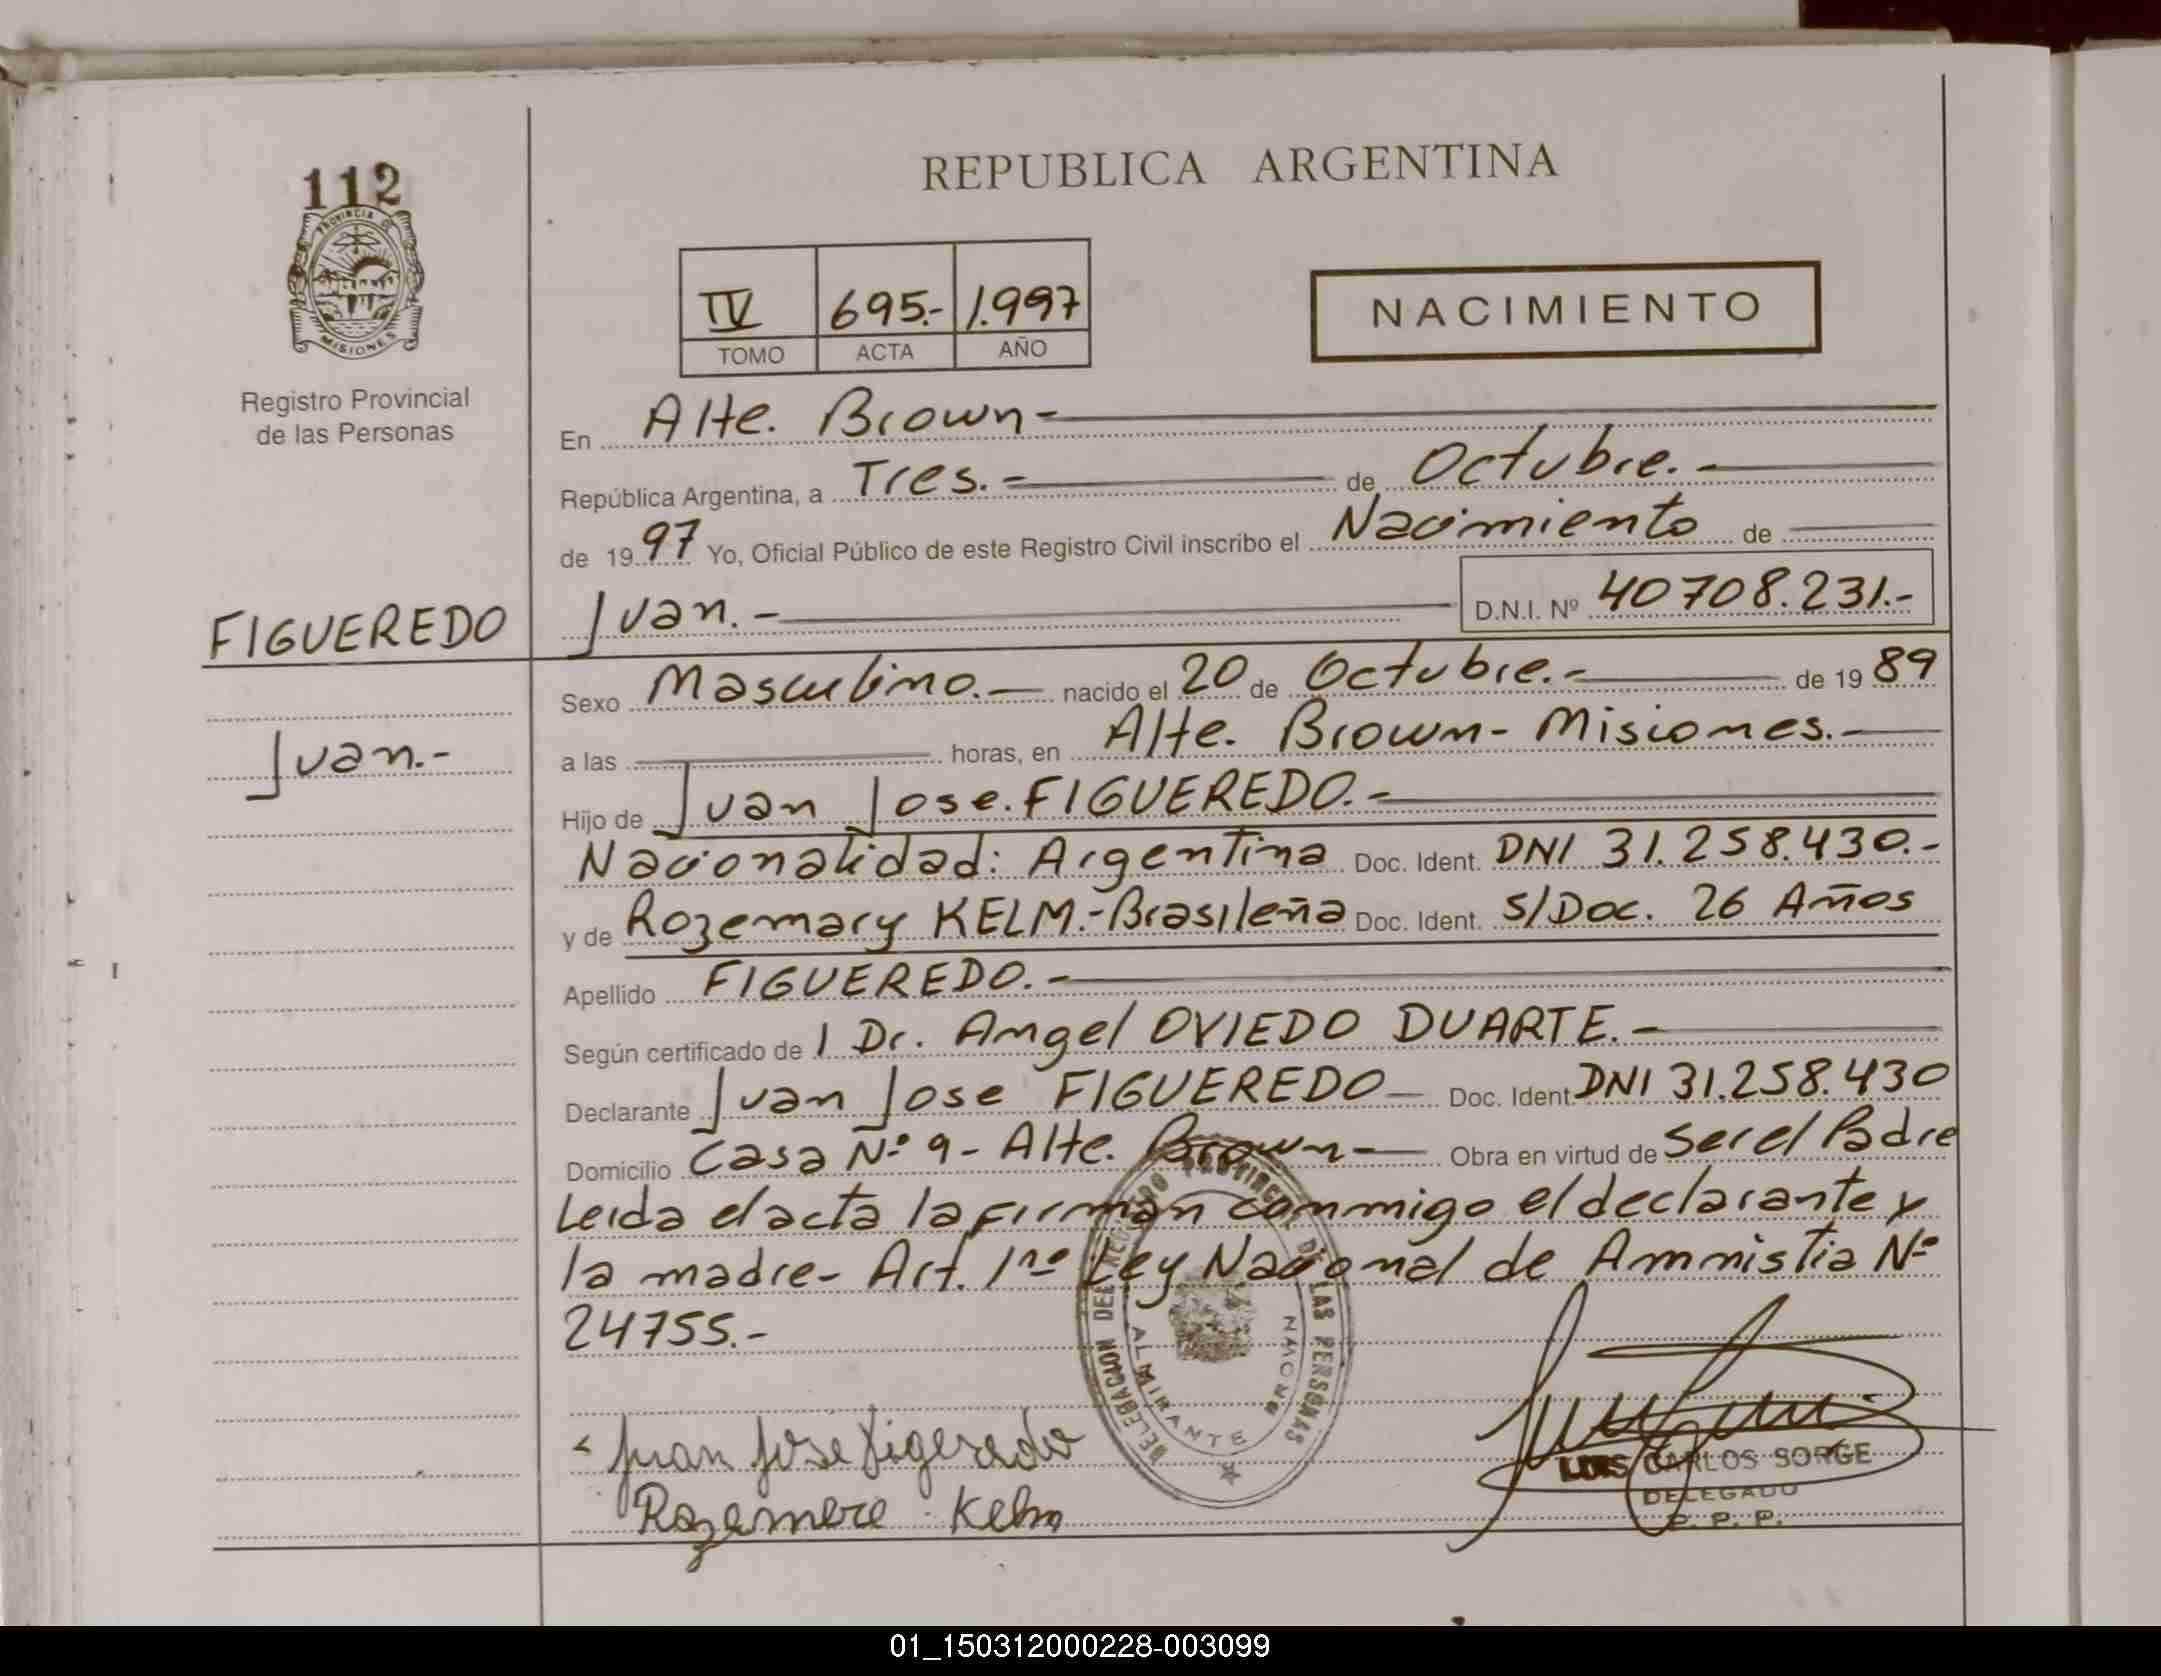 112
PROVINCIA
MISIONES
Registro Provincial
de las Personas
REPUBLICA ARGENTINA
IV 695.- 1.997
TOMO ACTA AÑO
NACIMIENTO
En Alte. Brown-
República Argentina, a Tres.- de Octubre.-
de 1997 Yo, Oficial Público de este Registro Civil inscribo el Nacimiento de
FIGUEREDO Juan.- D.N.I. Nº 40708.231.-
Sexo Masculino.- nacido el 20 de Octubre.- de 1989
Juan.-
a las horas, en Alte. Brown- Misiones.-
Hijo de Juan Jose. FIGUEREDO.-
Nacionalidad: Argentina Doc. Ident. DNI 31.258.430.-
y de Rozemary KELM.-Brasileña Doc. Ident. S/Doc. 26 Años
Apellido FIGUEREDO.-
Según certificado de 1 Dr. Angel OVIEDO DUARTE.-
Declarante Juan Jose FIGUEREDO- Doc. Ident. DNI 31.258.430
Domicilio Casa Nº 9- Alte. Brown- Obra en virtud de Ser el Padre
Leida el acta la firman conmigo el declarante y
la madre- Art. 1ro Ley Nacional de Amnistia Nº
24755.-
DELEGACION DEL REGISTRO PROVINCIAL DE LAS PERSONAS
ALMIRANTE BROWN
Juan Jose Figeredo
Rozemere Kelm
LUIS CARLOS SORGE
DELEGADO
R. P. P.
01_150312000228-003099